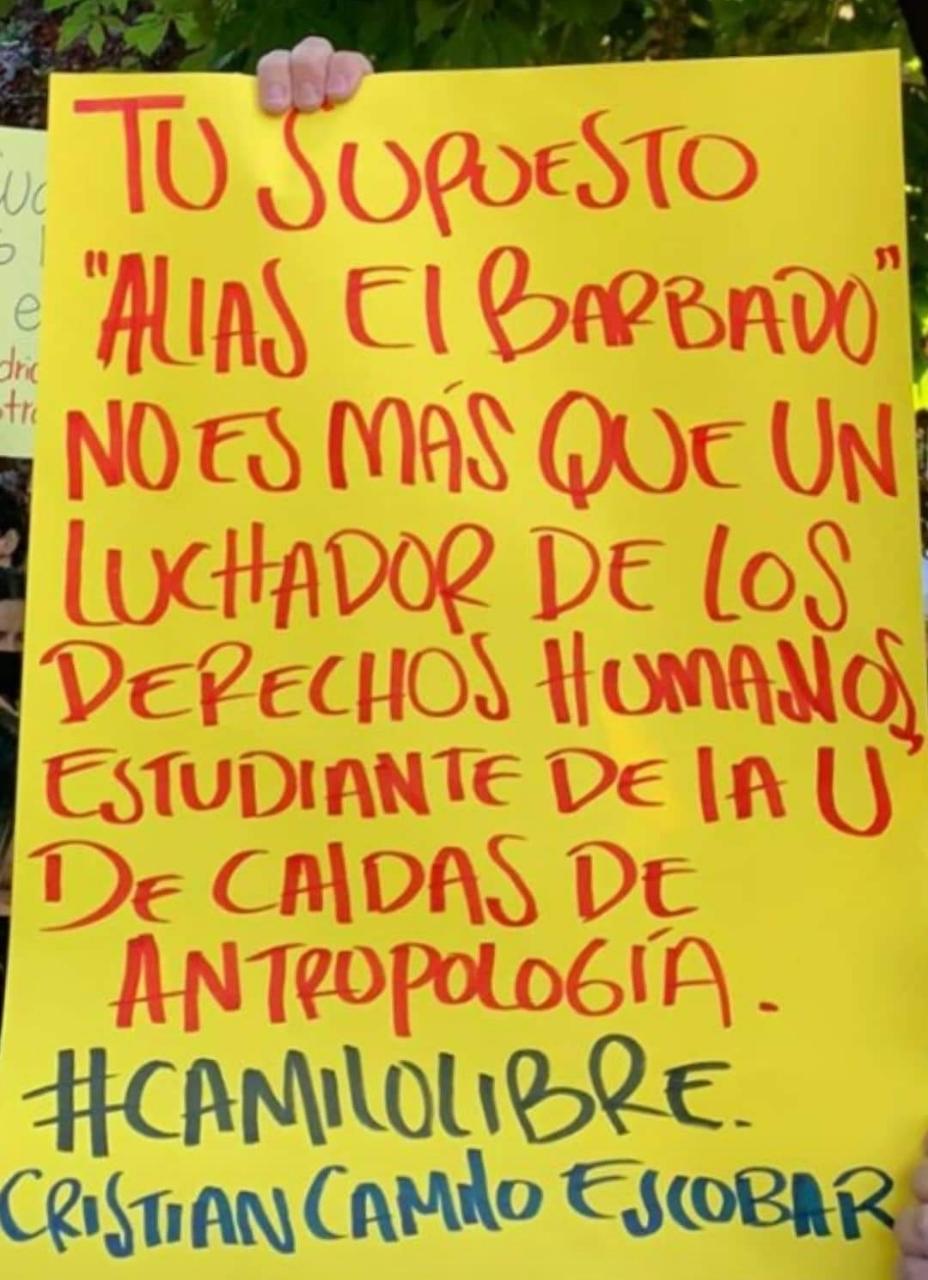 TU SUPUESTO
"ALIAS El BARBADO"
NO ES MÁS QUE UN
LUCHADOR DE LOS
DERECHOS HUMANOS,
ESTUDIANTE DE lA U
DE CAlDAS DE
ANTROPOLOGÍA.
#CAMILOLIBRE.
CRISTIAN CAMIlO ESCOBAR